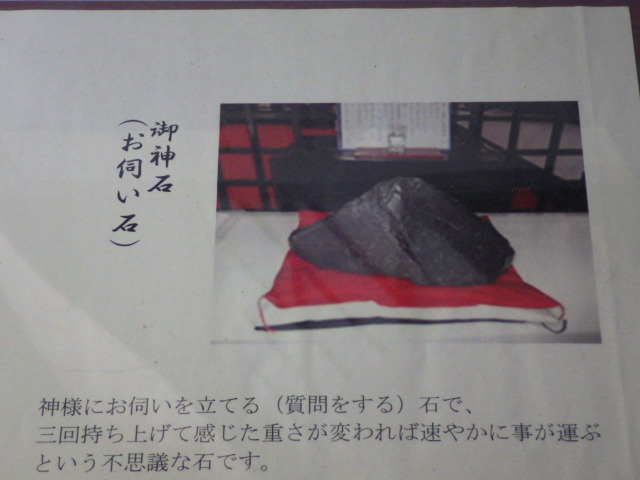 御神石
（お伺い石）
神様にお伺いを立てる（質問をする）石で、
三回持ち上げて感じた重さが変われば速やかに事が運ぶ
という不思議な石です。